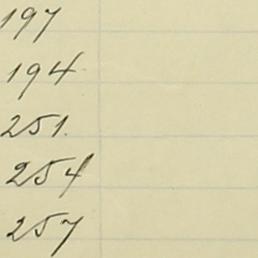 197
194
251.
254
257